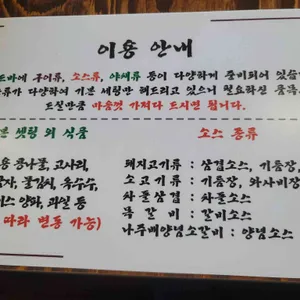 이용 안내
드바에 구이류, 소스류, 야채류 등이 다양하게 준비되어 있습
류가 다양하여 기본 세팅만 해드리고 있으니 필요하신 품목
드실만큼 마음껏 가져다 드시면 됩니다.
본 셋팅 외 식품
용 콩나물, 고사리,
물김치, 옥수수,
이스 양화, 과일 등
따라 변동 가능)
소스 종류
돼지고기류 : 삼겹소스, 기름장,
소고기류 : 기름장, 와사비장
차돌삼겹 : 차돌소스
쪽갈비 : 갈비소스
나주배양념소갈비 : 양념소스